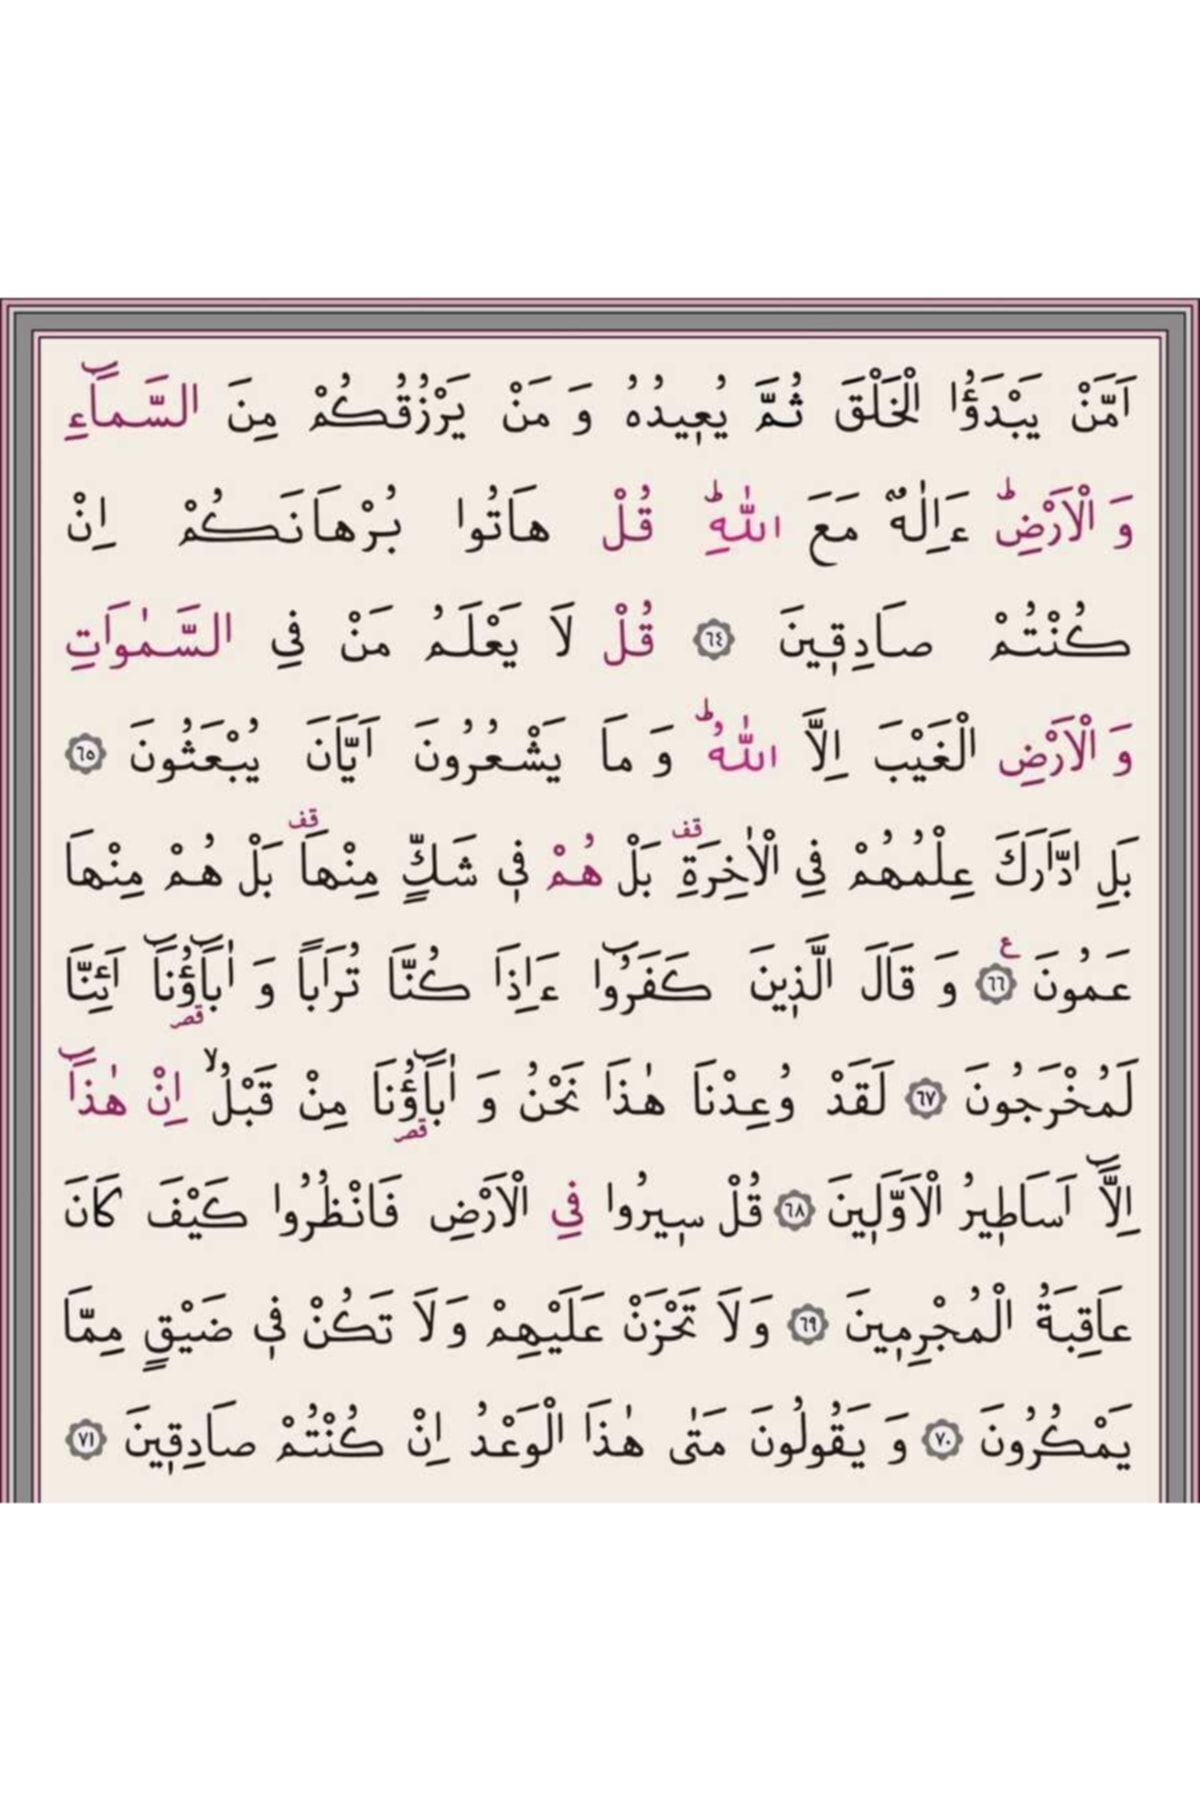 اَمَّنْ يَبْدَؤُا الْخَلْقَ ثُمَّ يُعٖيدُهُ وَ مَنْ يَرْزُقُكُمْ مِنَ السَّمَٓاءِ
وَ الْاَرْضِؕ ءَاِلٰهٌ مَعَ اللّٰهِؕ قُلْ هَاتُوا بُرْهَانَكُمْ اِنْ
كُنْتُمْ صَادِقٖينَ ﴿٦٤﴾ قُلْ لَا يَعْلَمُ مَنْ فِي السَّمٰوَاتِ
وَ الْاَرْضِ الْغَيْبَ اِلَّا اللّٰهُؕ وَ مَا يَشْعُرُونَ اَيَّانَ يُبْعَثُونَ ﴿٦٥﴾
بَلِ ادَّارَكَ عِلْمُهُمْ فِي الْاٰخِرَةِ قف بَلْ هُمْ فٖي شَكٍّ مِنْهَا قف بَلْ هُمْ مِنْهَا
عَمُونَ ﴿٦٦﴾ ع وَ قَالَ الَّذٖينَ كَفَرُٓوا ءَاِذَا كُنَّا تُرَاباً وَ اٰبَٓاؤُنَٓا قصر اَئِنَّا
لَمُخْرَجُونَ ﴿٦٧﴾ لَقَدْ وُعِدْنَا هٰذَا نَحْنُ وَ اٰبَٓاؤُنَا قصر مِنْ قَبْلُۙ اِنْ هٰذَٓا
اِلَّٓا اَسَاطٖيرُ الْاَوَّلٖينَ ﴿٦٨﴾ قُلْ سٖيرُوا فِي الْاَرْضِ فَانْظُرُوا كَيْفَ كَانَ
عَاقِبَةُ الْمُجْرِمٖينَ ﴿٦٩﴾ وَلَا تَحْزَنْ عَلَيْهِمْ وَلَا تَكُنْ فٖي ضَيْقٍ مِمَّا
يَمْكُرُونَ ﴿٧٠﴾ وَ يَقُولُونَ مَتٰى هٰذَا الْوَعْدُ اِنْ كُنْتُمْ صَادِقٖينَ ﴿٧١﴾